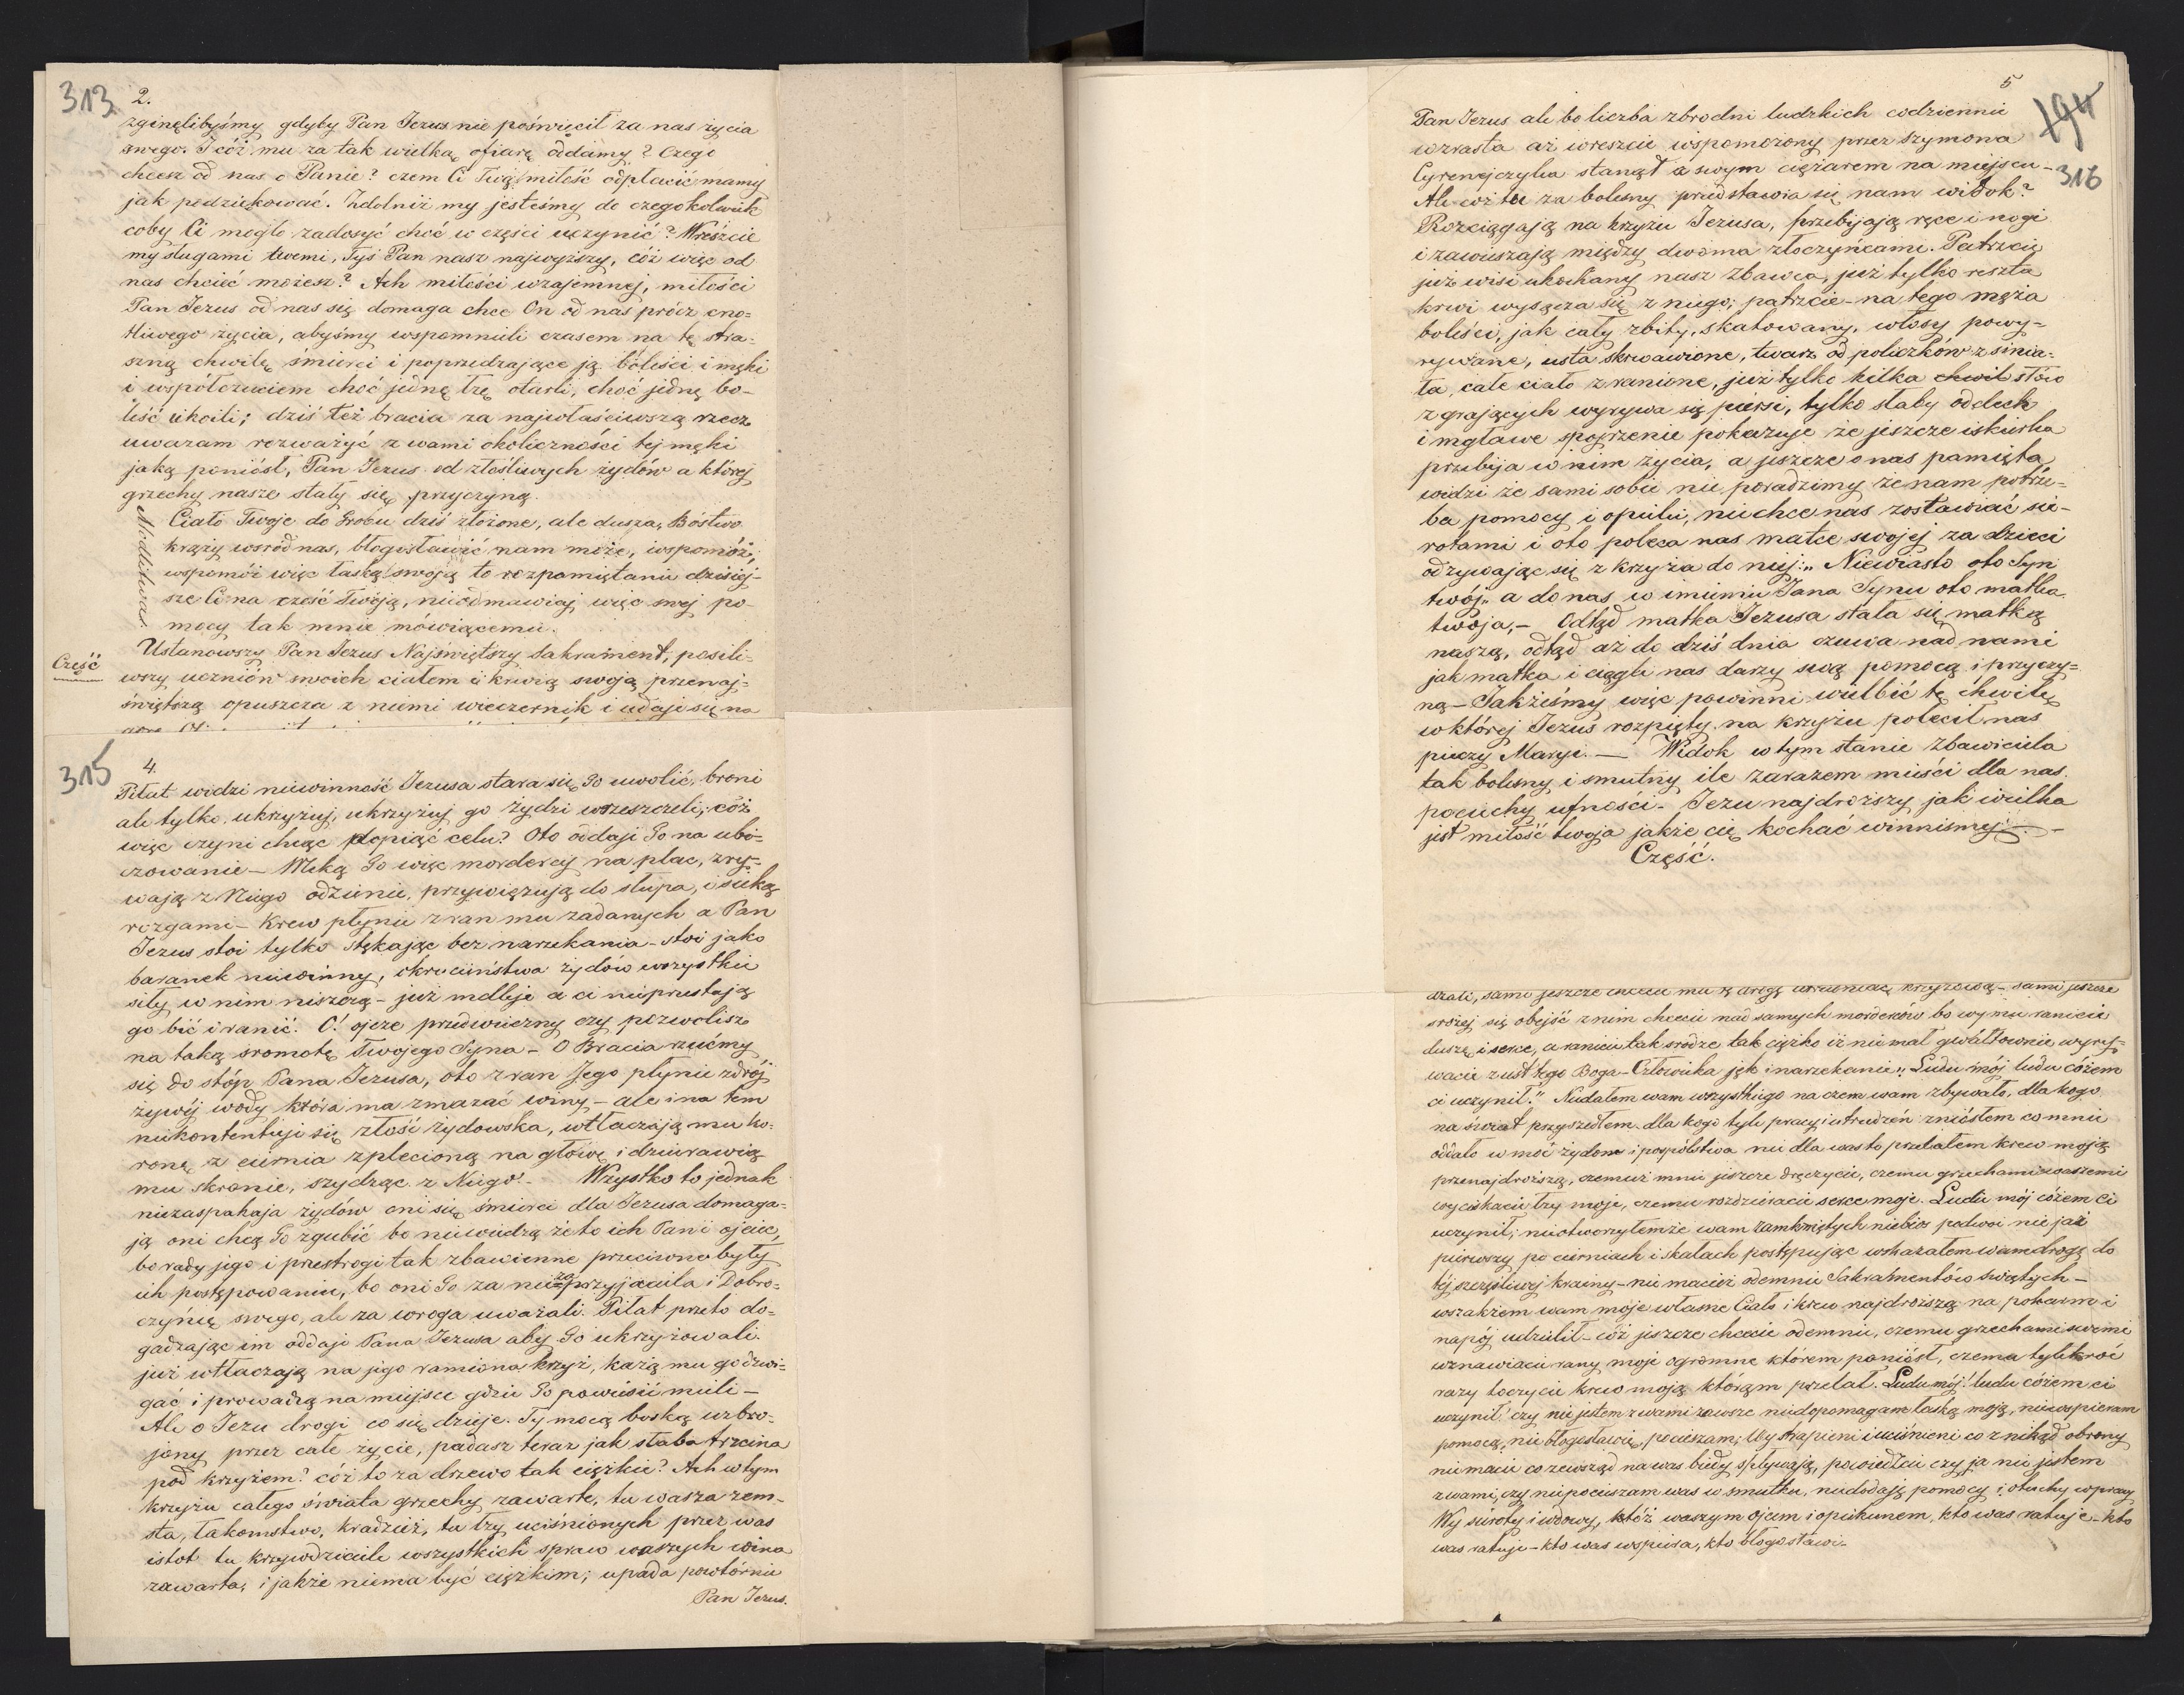 313
2.
zginęlibyśmy gdyby Pan Jezus nie poświęcił za nas życia
swego. I cóż mu za tak wielką ofiarę oddamy? Czego
chcesz od nas o Panie? czem Ci Twą miłość odpłacić mamy
jak podziękować. Zdolniż my jesteśmy do czegokolwiek
coby Ci mogło zadosyć choć w części uczynić? Wreszcie
my sługami twemi, Tyś Pan nasz najwyższy, cóż więc od
nas chcieć możesz? Ach miłości wzajemnej, miłości
Pan Jezus od nas się domaga chce On od nas prócz cno=
tliwego życia, abyśmy wspomnieli czasem na tę stra=
szną chwilę śmierci i poprzedzające ją boleści i męki
i współczuciem choć jednę łzę otarli, choć jednę bo-
leść ukoili; dziś też bracia za najwłaściwszą rzecz
uważam rozważyć z wami okoliczności tej męki
jaką poniósł, Pan Jezus od złośliwych żydów a której
grzechy nasze stały się przyczyną.
Modlitwa
Ciało Twoje do Grobu dziś złożone, ale dusza, Bóstwo
krąży wsród nas, błogosławić nam może, wspomóż,
wspomóż więc łaską swoją to rozpamiętanie dzisiej-
sze Ci na cześć Twoją, nieodmawiaj więc swej po-
mocy tak mnie mówiącemu.
Część
Ustanowszy Pan Jezus Najświętszy Sakrament, posili-
wszy uczniów swoich ciałem i krwią swoją przenaj=
świętszą opuszcza z niemi wieczernik i udaje się na
315
4.
Piłat widzi niewinność Jezusa stara się Go uwolić, broni
ale tylko ukrzyżuj, ukrzyżuj go żydzi wrzeszczeli; cóż
więc czyni chcąc dopiąć celu? Oto oddaje Go na ubi-
czowanie – Wleką Go więc mordercy na plac, zry=
wają z Niego odzienie, przywiązują do słupa, i sieką
rozgami – krew płynie z ran mu zadanych a Pan
Jezus stoi tylko stękając bez narzekania – stoi jako
baranek niewinny, okrucieństwa żydów wszystkie
siły w nim niszczą – już mdleje a ci nieprzestają
go bić i ranić. O! ojcze przedwieczny czy pozwolisz
na taką sromotę Twojego Syna – O Bracia rzućmy
się do stóp Pana Jezusa, oto z ran Jego płynie zdrój
żywéj wody która ma zmazać winy – ale i na tem
niekontentuje się złość żydowska, wtłaczają mu ko=
ronę z ciernia zplecioną na głowę i dziurawią
mu skronie, szydząc z Niego! – Wszystko to jednak
niezaspakaja żydów oni się śmierci dla Jezusa domaga=
ją oni chcą Go zgubić bo niewidzą że to ich Pan i ojciec,
bo rady jego i przestrogi tak zbawienne przeciwne były
ich postępowaniu, bo oni Go za nie za przyjaciela i Dobro=
czyńcę swego, ale za wroga uważali. Piłat przeto do=
gadzając im oddaje Pana Jezusa aby Go ukrzyżowali.
już wtłaczają na jego ramiona krzyż, każą mu go dźwi=
gać i prowadzą na miejsce gdzie Go powiesić mieli –
Ale o Jezu drogi co się dzieje. Ty mocą boską uzbro=
jony przez całe życie, padasz teraz jak słaba trzcina
pod krzyżem? cóż to za drzewo tak ciężkie? Ach w tym
krzyżu całego świata grzechy zawarte, tu wasza zem-
sta, łakomstwo, kradzież, tu łzy uciśnionych przez was
istot tu krzywdziciele wszystkich spraw waszych wina
zawarta, i jakże niema być ciężkim; upada powtórnie
Pan Jezus.
5
194
316
Pan Jezus ale bo liczba zbrodni ludzkich codziennie
wzrasta aż wreszcie wspomożony przez Szymona
Cyrenejczyka stanął z swym ciężarem na miejscu –
Ale cóż tu za bolesny przedstawia się nam widok?
Rozciągają na krzyżu Jezusa, przebijają ręce i nogi
i zawieszają między dwoma złoczyńcami. Patrzcie
już wisi ukochany nasz Zbawca, już tylko reszta
krwi wysącza się z niego; patrzcie – na tego męża
boleści, jak cały zbity, skatowany, włosy powy=
rywane, usta skrwawione, twarz od policzków zsinia=
ła, całe ciało zranione, już tylko kilka chwil słów
z grających wyrywa się piersi, tylko słaby oddech
i mgławe spojrzenie pokazuje że jeszcze iskierka
przebija w nim życia, a jeszcze o nas pamięta
widzi że sami sobie nie poradzimy że nam potrze=
ba pomocy i opieki, nie chce nas zostawiać sie-
rotami i oto poleca nas matce swojej za dzieci
odzywając się z krzyża do niej: „Niewiasto oto Syn
twój„ a do nas w imieniu Jana Synu oto matka
twoja, – Odtąd matka Jezusa stała się matką
naszą, odtąd aż do dziś dnia czuwa nad nami
jak matka i ciągle nas darzy swą pomocą i przyczy=
ną – Jakżeśmy więc powinni wielbić tę chwilę
w której Jezus rozpięty na krzyżu polecił nas
pieczy Maryi. – Widok w tym stanie Zbawiciela
tak bolesny i smutny ile zarazem mieści dla nas
pociechy ufności. Jezu najdroższy jak wielka
jest miłość twoja jakże cię kochać winniśmy. –
Część.
srożej się obejść z nim chcecie nad samych morderców bo wy mu ranicie
duszę i serce, a ranicie tak srodze tak ciężko iż nie mal gwałtownie wyry=
wacie z ust tego Boga – Człowieka jęk i narzekanie „Ludu mój ludu cóżem
ci uczynił." Niedałem wam wszystkiego na czem wam zbywało, dla kogo
na świat przyszedłem, dla kogo tyle pracy i utrudzeń zniósłem co mnie
oddało w moc żydom i pospólstwa nie dla was to przelałem krew moją
przenajdroższą, czemuż mnie jeszcze dręczycie, czemu grzechami waszemi
wyciskacie łzy moje, czemu rozdzieracie serce moje. Ludu mój cóżem Ci
uczynił; nieotworzyłemże wam zamkniętych niebios podwoi nie jaż
pierwszy po cierniach i skałach postępując wskazałem wam drogę do
téj szczęśliwej krainy – nie macież odemnie Sakramentów świętych –
wszakżem wam moje własne Ciało i krew najdroższą na pokarm i
napój udzielił – cóż jeszcze chcecie odemnie, czemu grzechami swemi
wznawiacie rany moje ogromne którem poniósł, czemu tylekroć
razy toczycie krew moją którąm przelał. Ludu mój! ludu cóżem ci
uczynił! czy nie jestem z wami zawsze niedopomagam łaską moją, niewspieram
pomocą, nie błogosławię, pocieszam; Wy strapieni i uciśnieni co znikąd obrony
nie macie co zewsząd na was biédy spływają, powiedzcie czy ja nie jestem
z wami, czy niepocieszam was w smutku, niedodaję pomocy i otuchy w pracy
Wy sieroty i wdowy, któż waszym ojcem i opiekunem, kto was ratuje – kto
was ratuje – kto was wspiera, kto błogosławi –